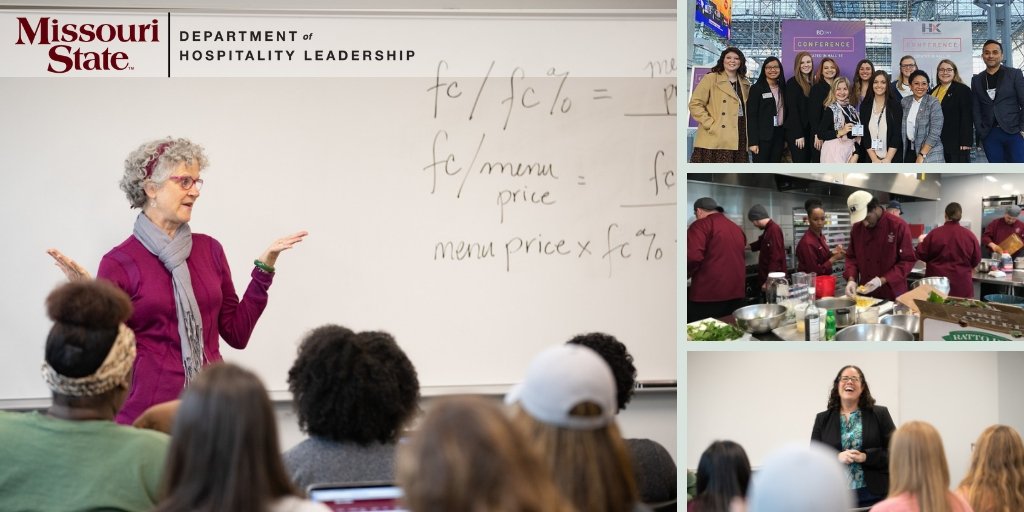 Missouri
State™
DEPARTMENT of
HOSPITALITY LEADERSHIP
fc / fc% =
fc / menu
price =
fc
menu price x fc%
CONFERENCE
HX
CONFERENCE